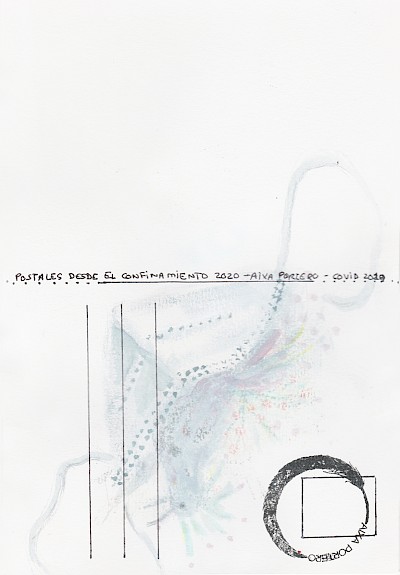 POSTALES DESDE EL CONFINAMIENTO 2020 - AIVA PORTERO - COVID 2019
AIVA PORTERO